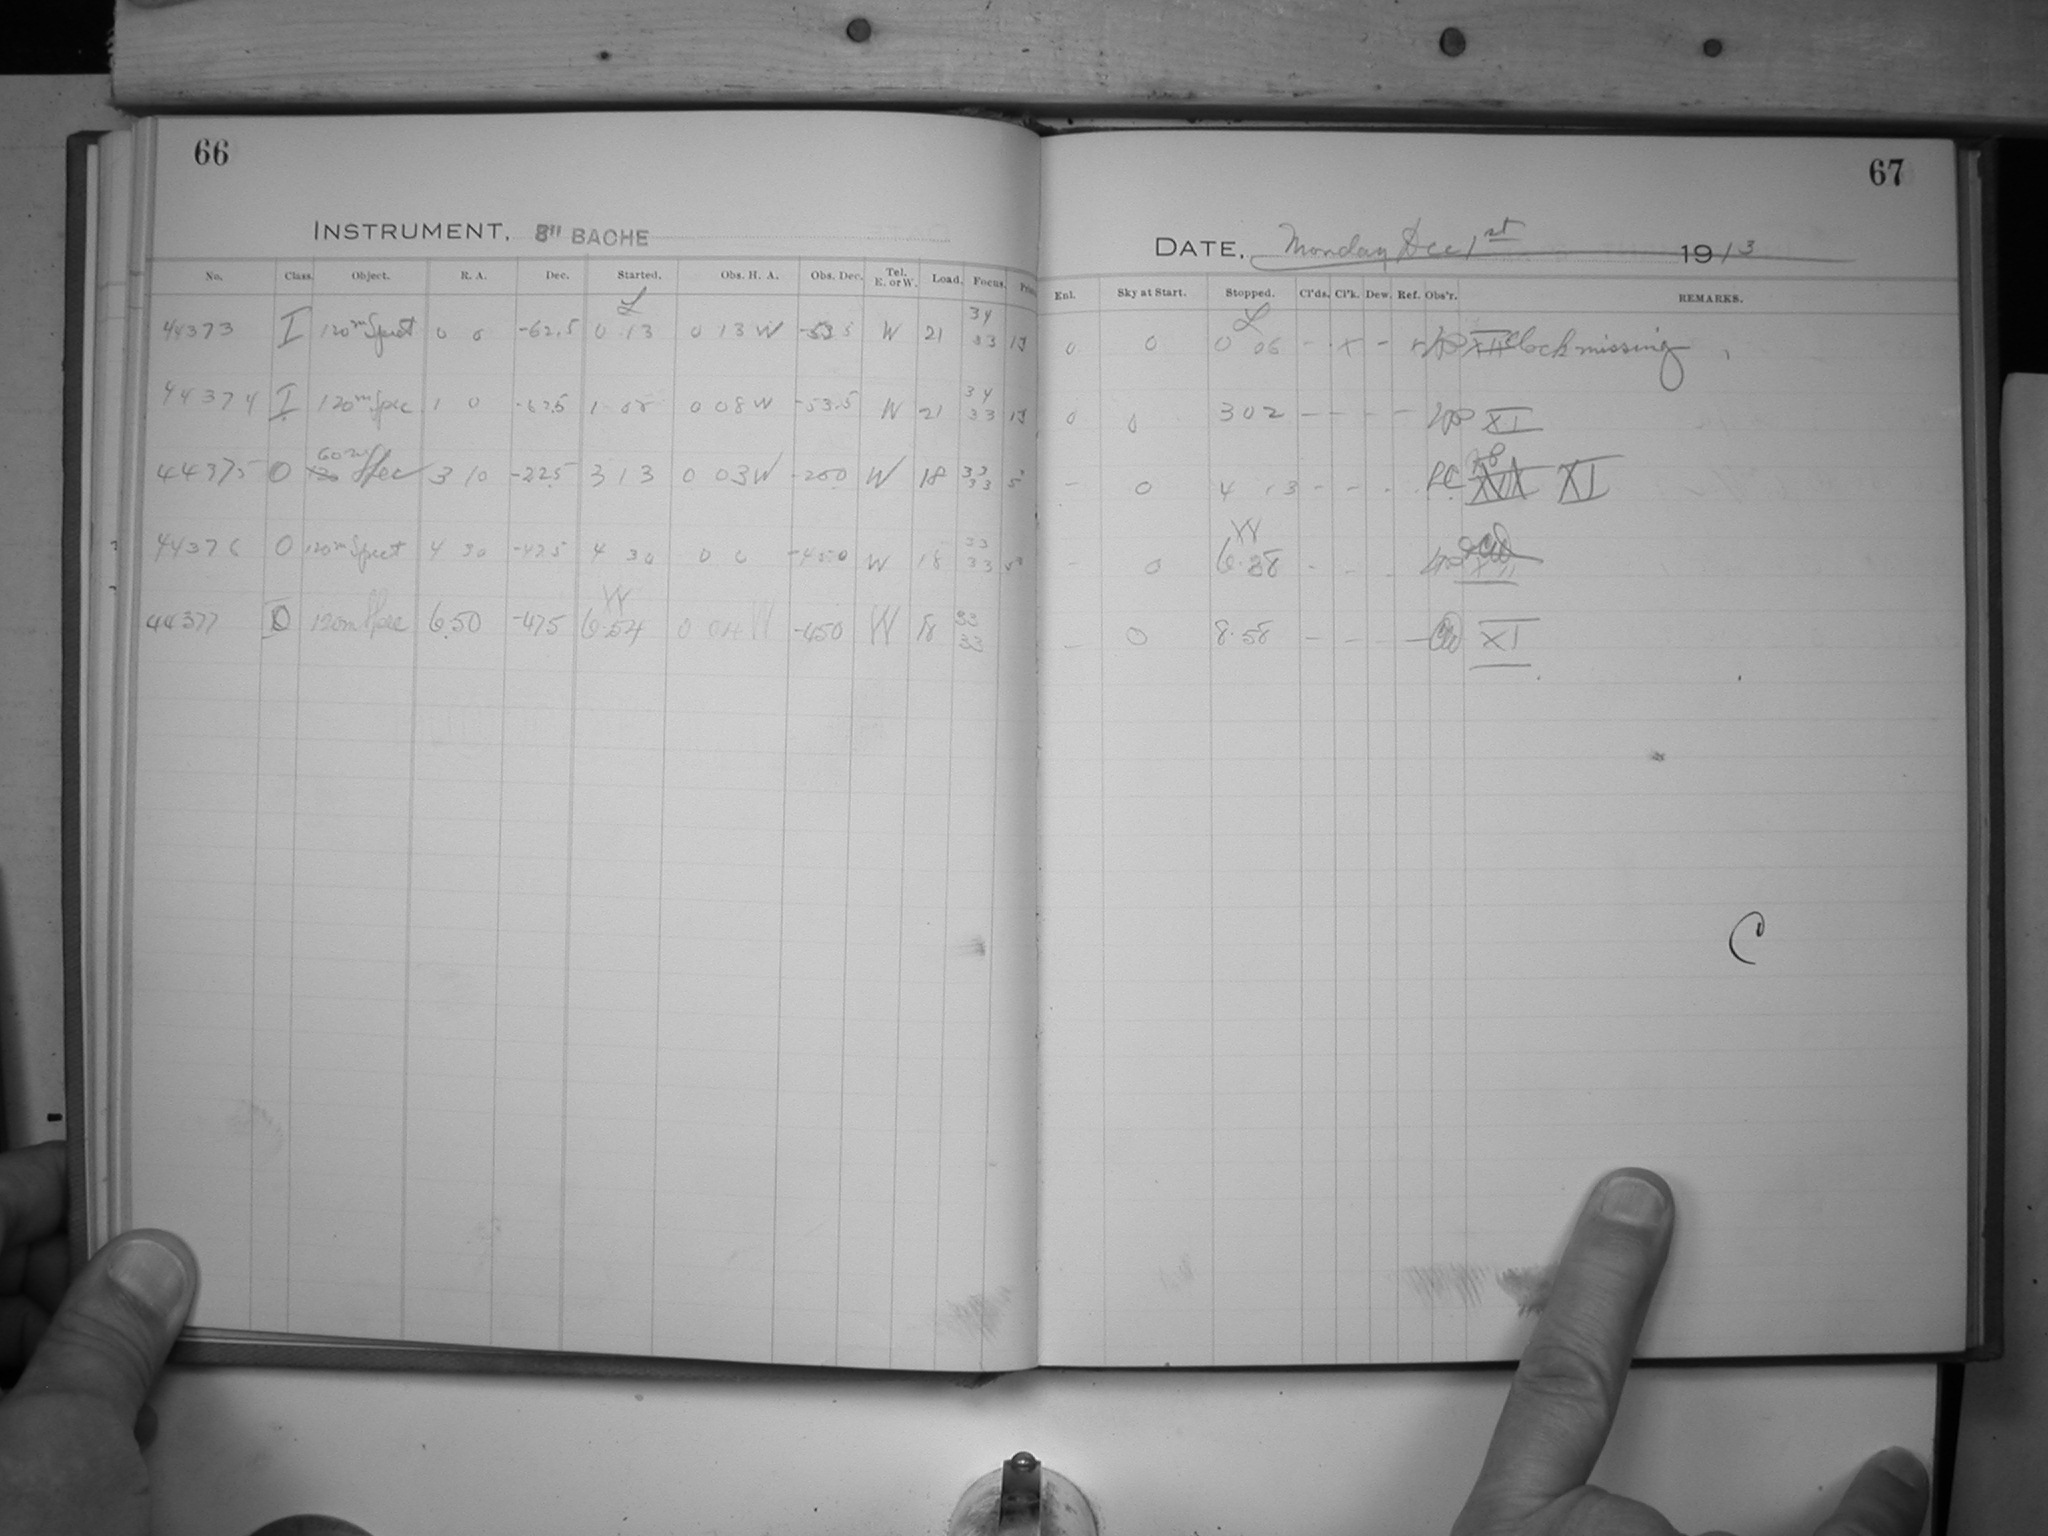 66
INSTRUMENT. 8" BACHE
No. Class. Object. R. A. Dec. Started. Obs. H. A. Obs. Dec. Tel. E. or W. Load. Focus.
L 34
44373 I 120m Spect 0 0 -62.5 0 13 0 13 W -53.5 W 21 33
34
44374 I 120m Spec 1 0 -62.5 1 08 0 08 W -53.5 W 21 33
60m 33
44375 O Spec 3 10 -22.5 3 13 0 03 W W 18 33 5
33
44376 O 120m Spect 4 30 -47.5 4 30 0 0 -45.0 W 18 33
W 33
44377 120m Spec 6.50 -47.5 6.54 0 04 W -45.0 W 18 33
67
DATE. Monday Dec 1st 1913
Enl. Sky at Start. Stopped. Cl'ds. Cl'k. Dew. Ref. Obs'r. REMARKS.
L
0 0 0 06 - x - XII Clock missing
0 0 3 02 - - - - XI
- 0 4 13 - - - XI
W
- 0 6.28 - - -
- 0 8.58 - - - - XI
C